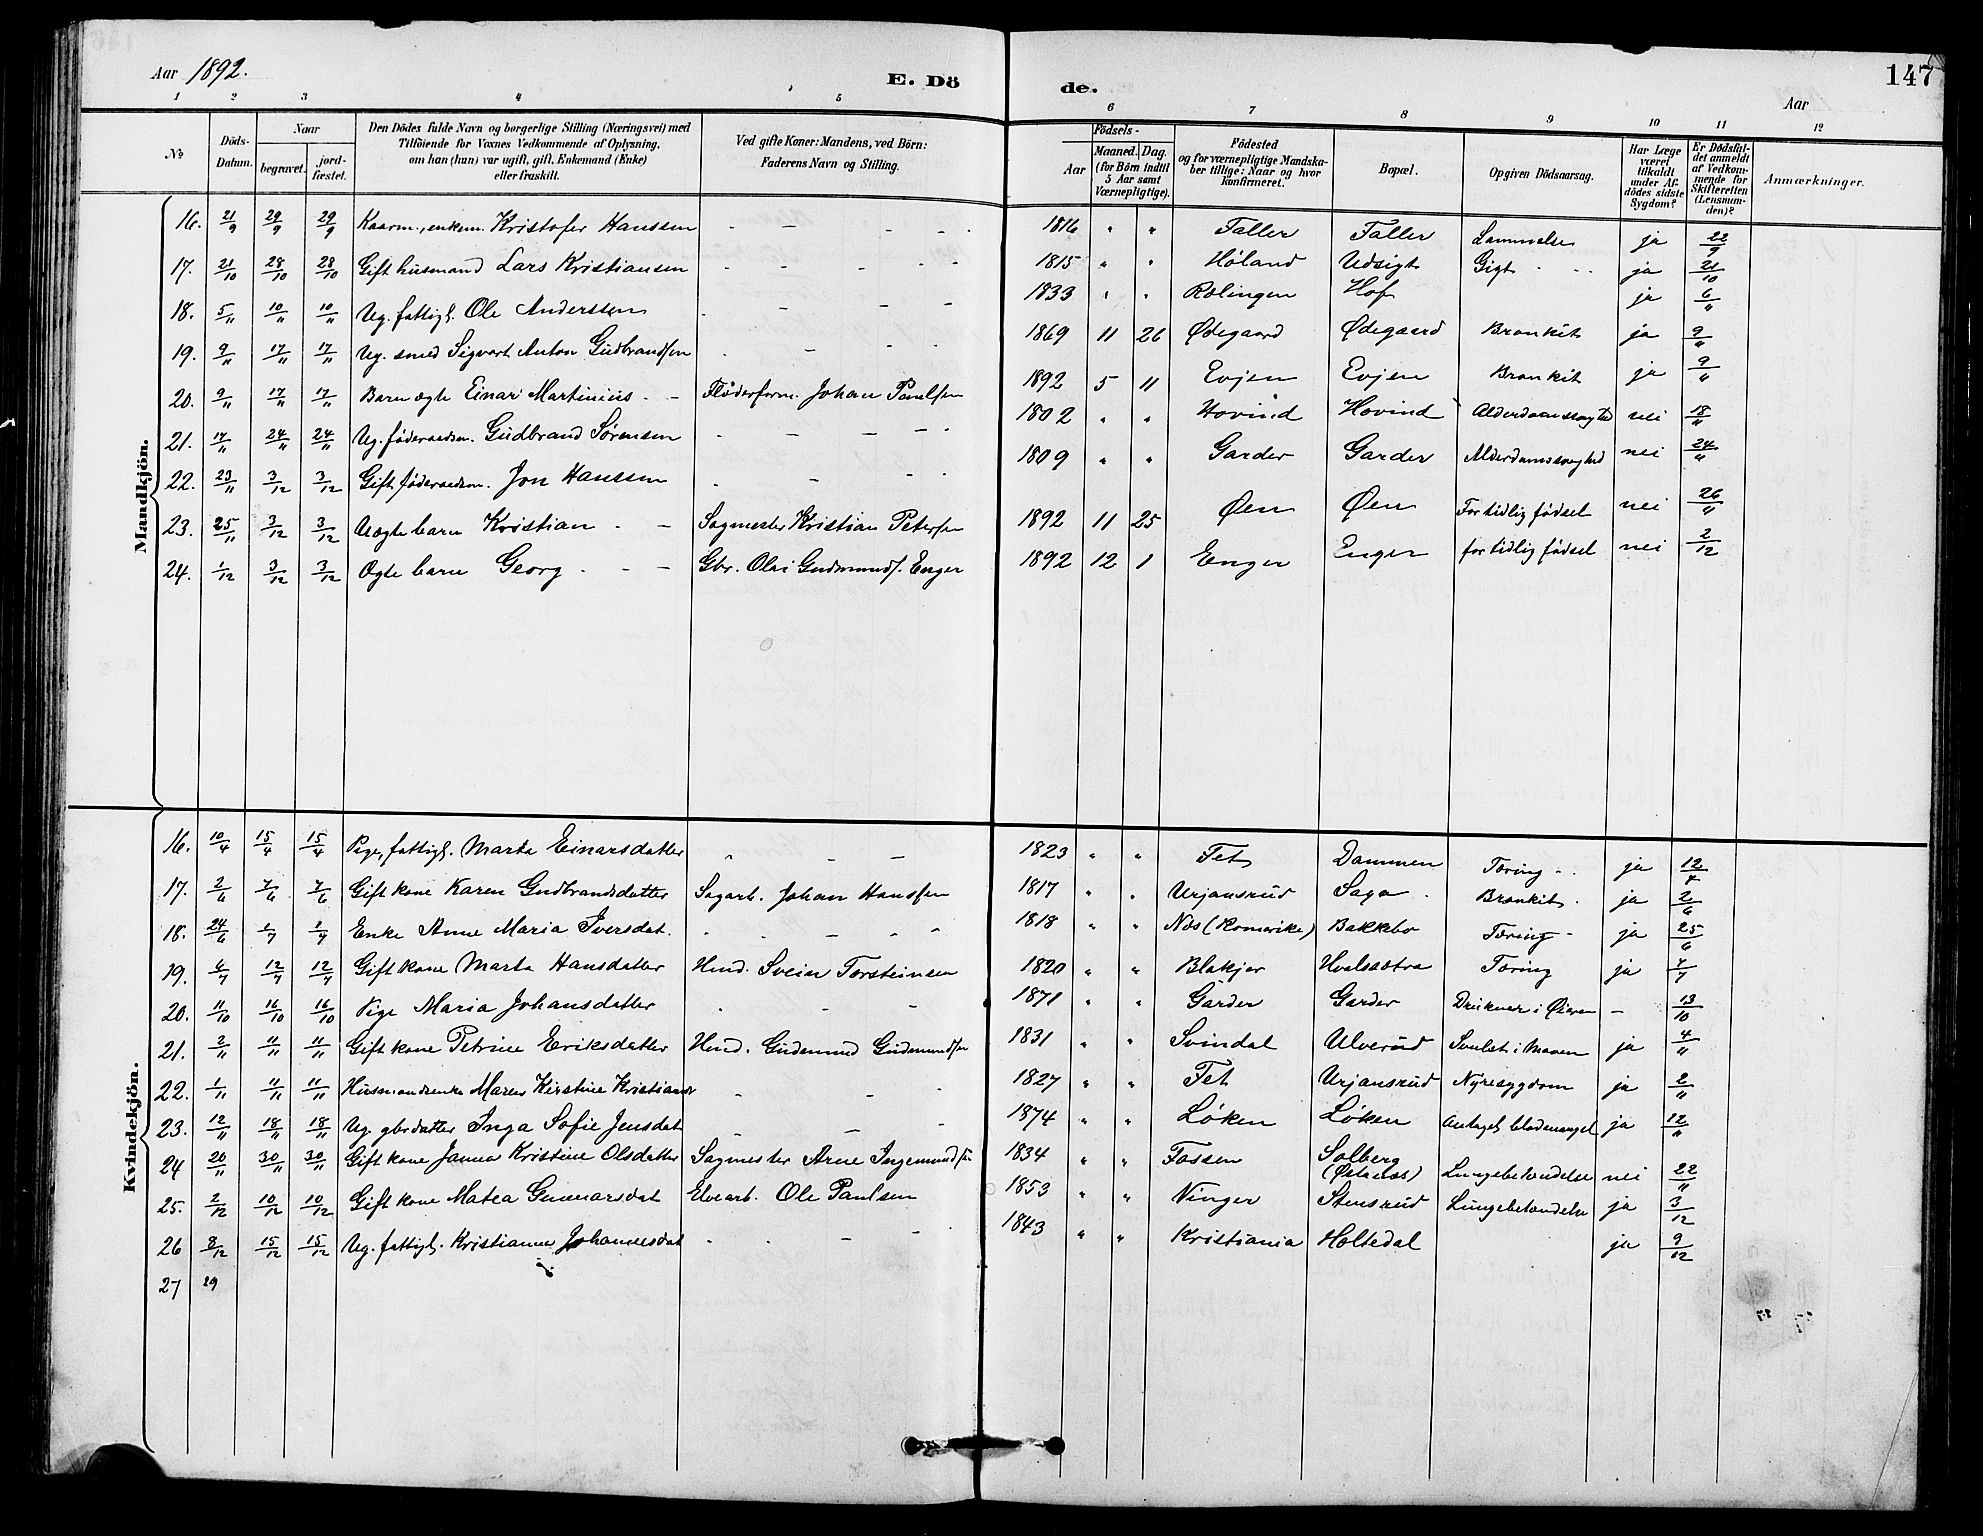 Aar 1892. E. Dö de. Aar 147
1 2 3 4 5 6 7 8 9 10 11 12
No Döds-Datum. Naar begravet. jord-fæstet. Den Dödes fulde Navn og borgerlige Stilling (Næringsvei) med Tilföiende for Voxnes Vedkommende af Oplysning, om han (hun) var ugift, gift, Enkemand (Enke) eller fraskilt. Ved gifte Koner: Mandens, ved Börn: Faderens Navn og Stilling. Födsels- Aar Maaned. Dag. (for Börn indtil 5 Aar samt Værnepligtige). Födested og for værnepligtige Mandskaber tillige: Naar og hvor konfirmeret. Bopæl. Opgiven Dödsaarsag. Har Læge været tilkaldt under Afdödes sidste Sygdom? Er Dödsfaldet anmeldt af Vedkommende for Skifteretten (Lensmanden)? Anmærkninger.
Mandkjön.
16. 21/9 29/9 29/9 Kaarm., enkem. Kristofer Hanssen - - - - 1816 " " Faller Faller Lammelse ja 22/9
17. 21/10 28/10 28/10 Gift husmand Lars Kristiansen - - - - 1815 " " Høland Udsigt Gigt - - ja 21/10
18. 5/11 10/11 10/11 Ug. fattigl. Ole Anderssen - - - - 1833 " " Rælingen Hof ja 6/11
19. 9/11 17/11 17/11 Ug. smed Sigvart Anton Gudbrandsen - - - 1869 11 26 Ødegaard Ødegaard Bronkit ja 9/11
20. 9/11 17/11 17/11 Barn ægte Einar Martinius - - Fløderform. Johan Paulsen 1892 5 11 Evjen Evjen Bronkit ja 9/11
21. 17/11 24/11 24/11 Ug. føderaadsm. Gudbrand Sørensen - - - - 1802 " " Hovind Hovind Alderdomssvaghed nei 18/11
22. 23/11 3/12 3/12 Gift føderaadsm. Jon Hanssen - - - - 1809 " " Garder Garder Alderdomssvaghed nei 24/11
23. 25/11 3/12 3/12 Uægte barn Kristian - - Sagmester Kristian Petersen 1892 11 25 Øien Øien For tidlig fødsel nei 26/11
24. 1/12 3/12 3/12 Ægte barn Georg - - - Gbr. Olai Gudmunds. Enger 1892 12 1 Enger Enger for tidlig fødsel nei 2/12
Kvindekjön.
16. 10/4 15/4 15/4 Pige, fattigl. Marta Einarsdatter " - - 1823 " " Fet Dammen Tæring - - ja 12/4
17. 2/6 7/6 7/6 Gift kone Karen Gudbrandsdatter Sagarb. Johan Hansen 1817 " " Urjansrud Saga - Bronkit - ja 2/6
18. 24/6 2/7 2/7 Enke Anne Maria Iversdat. - - - - 1818 " " Næs (Romerike) Bakkebo Tæring - ja 25/6
19. 6/7 12/7 12/7 Gift kone Marta Hansdatter Hmd. Svein Torsteinsen 1820 " " Blakjer Hvalsætra Tæring ja 7/7
20. 11/10 16/10 16/10 Pige Maria Johansdatter - - - 1871 " " Garder Garder Druknet i Øieren - 13/10
21. 2/11 11/11 11/11 Gift kone Petrine Eriksdatter Hmd. Gudmund Gudmundsen 1831 " " Svindal Ulverud Svulst i Maven ja 4/11
22. 1/11 11/11 11/11 Husmandsenke Maren Kirstine Kristiansd - - - 1827 " " Fet Urjansrud Nyresygdom ja 2/11
23. 12/11 18/11 18/11 Ug. gbrdatter Inga Sofie Jensdat - - - 1874 " " Løken Løken Antaget blodmangel ja 12/11
24 20/11 30/11 30/11 Gift kone Janna Kristine Olsdatter Sagmester Arne Ingemundsen 1834 " " Fossen Solberg (Østenaas) Lungebetændelse nei 22/11
25. 2/12 10/12 10/12 Gift kone Matea Gunnarsdat Elvearb. Ole Paulsen 1853 " " Vinger Stensrud Lungebetændelse ja 3/12
26 8/12 15/12 15/12 Ug. fattigl. Kristianne Johannesdat - - - - 1843 " " Kristiania Holtedal ja 9/12
27 29